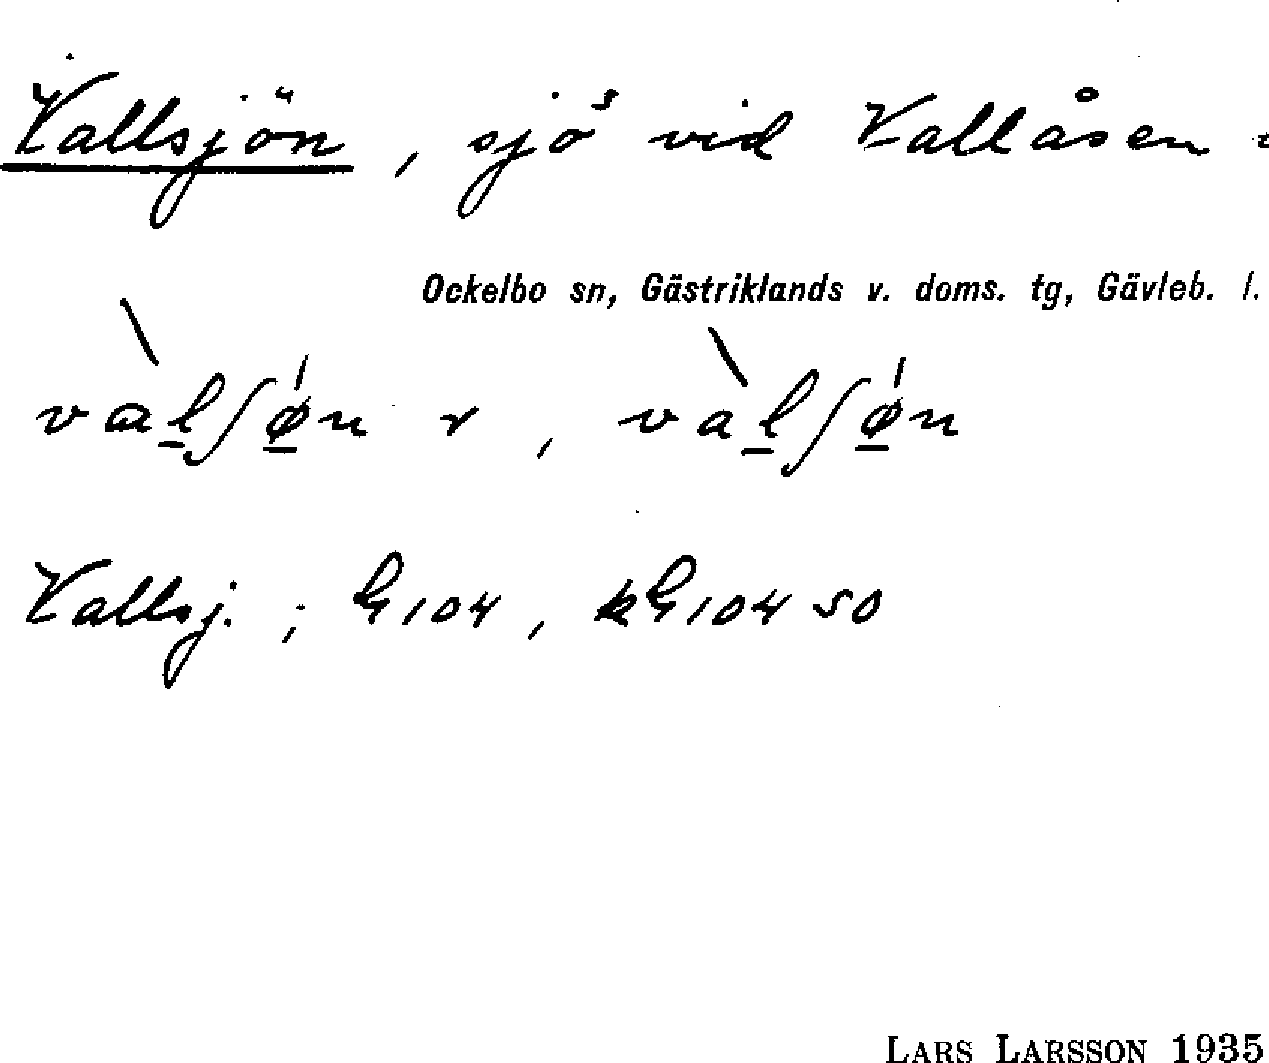 Vallsjön, sjö vid Vallåsen
Ockelbo sn, Gästriklands v. doms. tg, Gävleb. l.
vɑ̀l̲ʃǿ̲n r, vàl̲ʃǿ̲n
Vallsj.; G104, kG104 SO
LARS LARSSON 1935